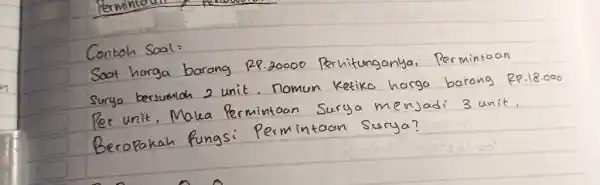 Contoh Soal :
Saat harga barang RP.20000 Perhitunganya, Permintaan
Surya berjumlah 2 unit. namun ketika harga barang RP.18.000
Per unit, Maka Permintaan Surya menjadi 3 unit,
Berapakah fungsi Permintaan Surya?